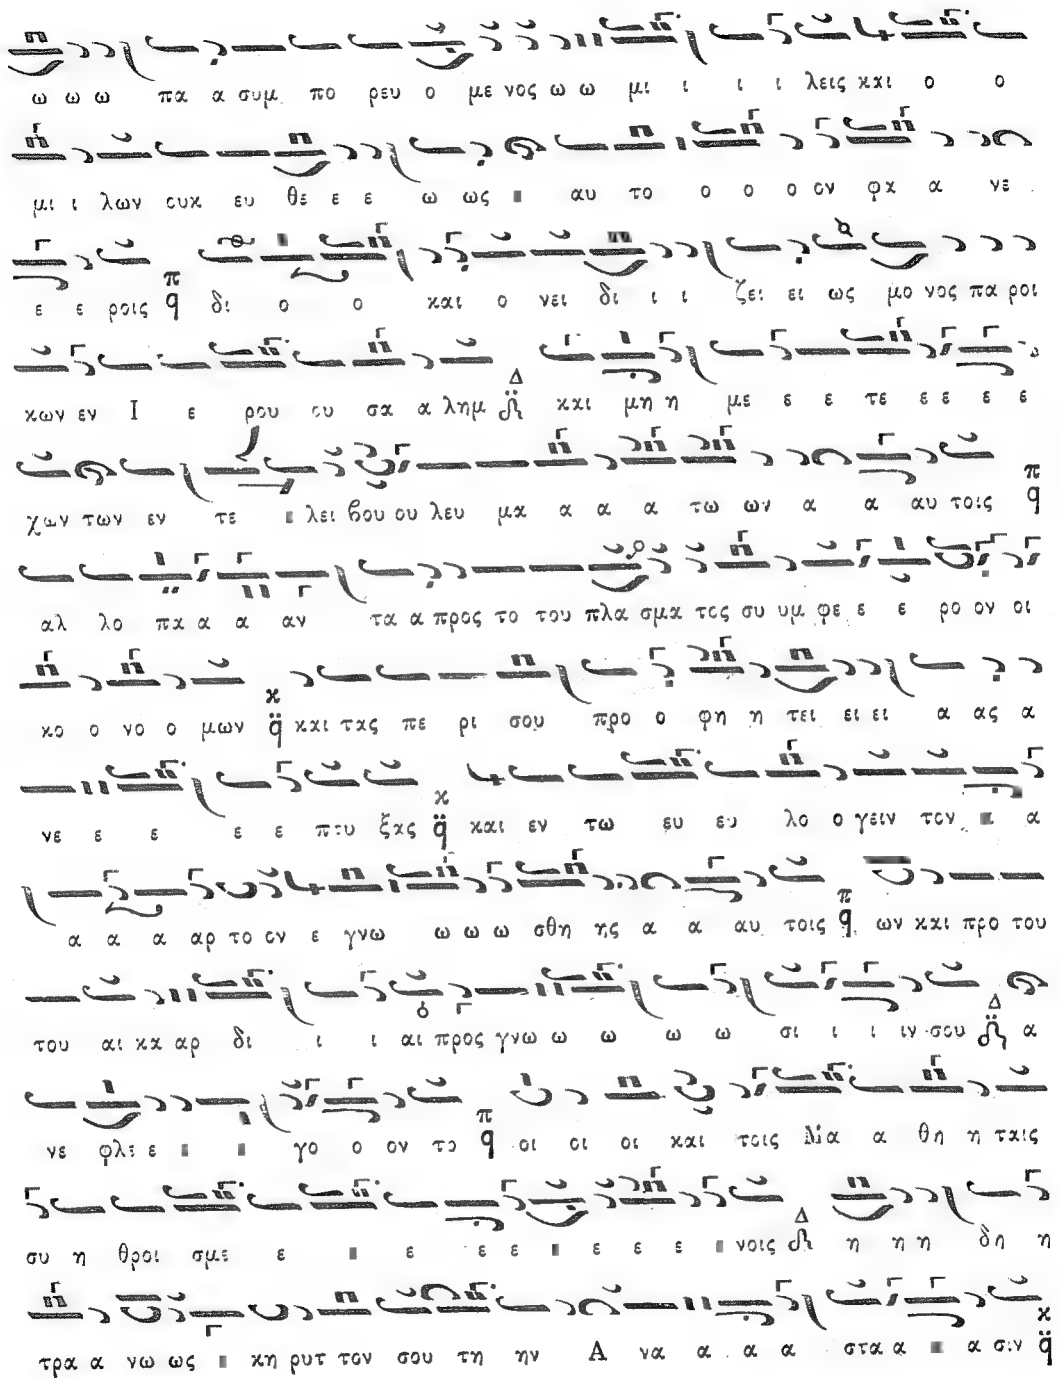 ω ω ω πα α συμ πο ρευ ο με νος ω ω μι ι ι ι λεις και ο ο
μι ι λων ουκ ευ θε ε ε ω ως αυ το ο ο ο ον φα α νε
ε ε ροις π q δι ο ο και ο νει δι ι ι ζει ει ως μο νος πα ροι
κων εν Ι ε ρου ου σα α λημ Δ και μη η με ε ε τε ε ε ε ε
χων των εν τε λει βου ου λευ μα α α α τω ων α α αυ τοις π q
αλ λο πα α α αν τα α προς το του πλα σμα τος συ υμ φε ε ε ρο ον οι
κο ο νο ο μων κ q και τας πε ρι σου προ ο φη η τει ει ει α ας α
νε ε ε ε ε πτυ ξας κ q και εν τω ευ ευ λο ο γειν τον α
α α α αρ το ον ε γνω ω ω ω σθη ης α α αυ τοις π q ων και προ του
του αι κα αρ δι ι ι αι προς γνω ω ω ω ω σι ι ι ιν σου Δ α
νε φλε ε γο ο ον το π q οι οι οι και τοις Μα α θη η ταις
συ η θροι σμε ε ε ε ε ε ε ε νοις Δ η η η δη η
τρα α νω ως κη ρυτ τον σου τη ην Α να α α α στα α α σιν κ q